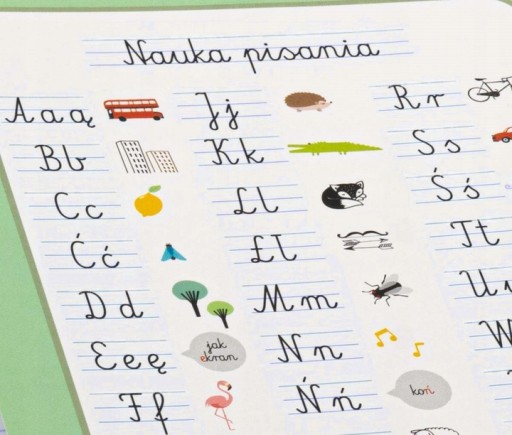 Nauka pisania
A a ą
B b
C c
Ć ć
D d
E e ę
jak
ekran
F f
J j
K k
L l
Ł ł
M m
N n
Ń ń
koń
R r
S s
Ś ś
T t
U u
W